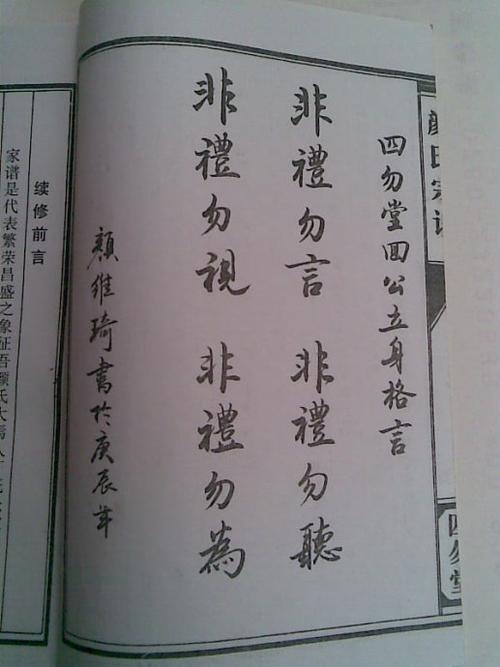 顏氏宗譜
四勿堂
四勿堂回公立身格言
非禮勿言　非禮勿聽
非禮勿視　非禮勿為
顏維琦書於庚辰年
续修前言
家谱是代表繁荣昌盛之象征吾颜氏大